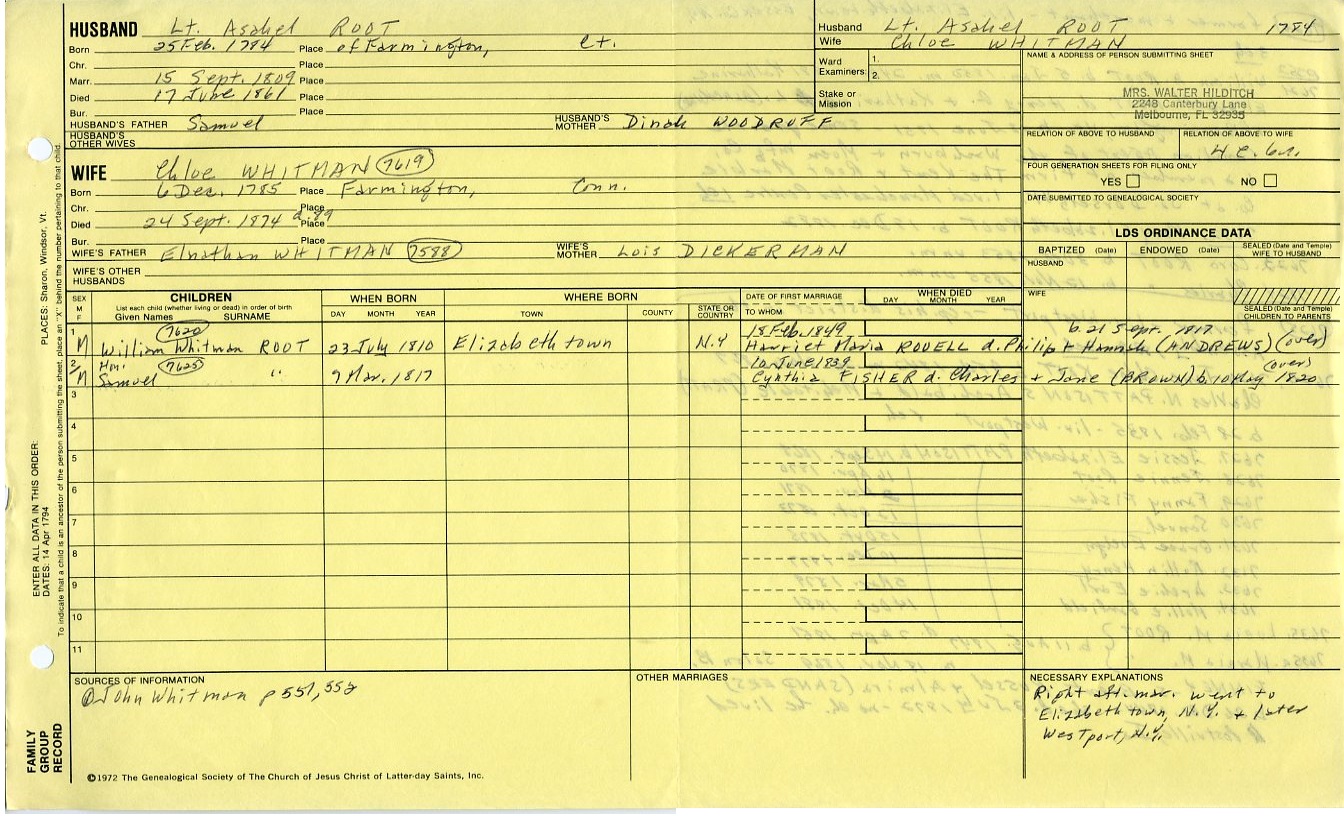 HUSBAND Lt. Asahel ROOT
Born 25 Feb. 1784 Place of Farmington, Ct.
Chr. Place
Marr. 15 Sept. 1809 Place
Died 17 June 1861 Place
Bur. Place
HUSBAND'S FATHER Samuel HUSBAND'S MOTHER Dinah WOODRUFF
HUSBAND'S OTHER WIVES
WIFE Chloe WHITMAN 7619
Born 6 Dec. 1785 Place Farmington, Conn.
Chr. Place
Died 24 Sept. 1874 a. 89 Place
Bur. Place
WIFE'S FATHER Elnathan WHITMAN 7588 WIFE'S MOTHER Lois DICKERMAN
WIFE'S OTHER HUSBANDS
Husband Lt. Asahel ROOT 1784
Wife Chloe WHITMAN
Ward Examiners: 1.
2.
Stake or Mission
NAME & ADDRESS OF PERSON SUBMITTING SHEET
MRS. WALTER HILDITCH
2248 Canterbury Lane
Melbourne, FL 32935
RELATION OF ABOVE TO HUSBAND RELATION OF ABOVE TO WIFE
4 c. 6 r.
FOUR GENERATION SHEETS FOR FILING ONLY
YES NO
DATE SUBMITTED TO GENEALOGICAL SOCIETY
LDS ORDINANCE DATA
BAPTIZED (Date) ENDOWED (Date) SEALED (Date and Temple) WIFE TO HUSBAND
HUSBAND
WIFE
SEALED (Date and Temple) CHILDREN TO PARENTS
SEX M F CHILDREN WHEN BORN WHERE BORN DATE OF FIRST MARRIAGE WHEN DIED
List each child (whether living or dead) in order of birth
Given Names SURNAME DAY MONTH YEAR TOWN COUNTY STATE OR COUNTRY TO WHOM DAY MONTH YEAR
1 7620 18 Feb. 1849 b. 21 Sept. 1817
M William Whitman ROOT 23 July 1810 Elizabethtown N.Y Harriet Maria ROUELL d. Philip + Hannah (ANDREWS) (over)
2 Hon. 7625 10 June 1839 (over)
M Samuel " 9 Mar. 1817 Cynthia FISHER d. Charles + Jane (BROWN) b. 10 May 1820
3
4
5
6
7
8
9
10
11
SOURCES OF INFORMATION
① John Whitman p 551, 552
OTHER MARRIAGES
NECESSARY EXPLANATIONS
Right aft. mar. went to
Elizabethtown, N.Y. + later
Westport, N.Y.
©1972 The Genealogical Society of The Church of Jesus Christ of Latter-day Saints, Inc.
FAMILY GROUP RECORD
ENTER ALL DATA IN THIS ORDER:
DATES: 14 Apr 1794
PLACES: Sharon, Windsor, Vt.
To indicate that a child is an ancestor of the person submitting the sheet, place an "X" behind the number pertaining to that child.